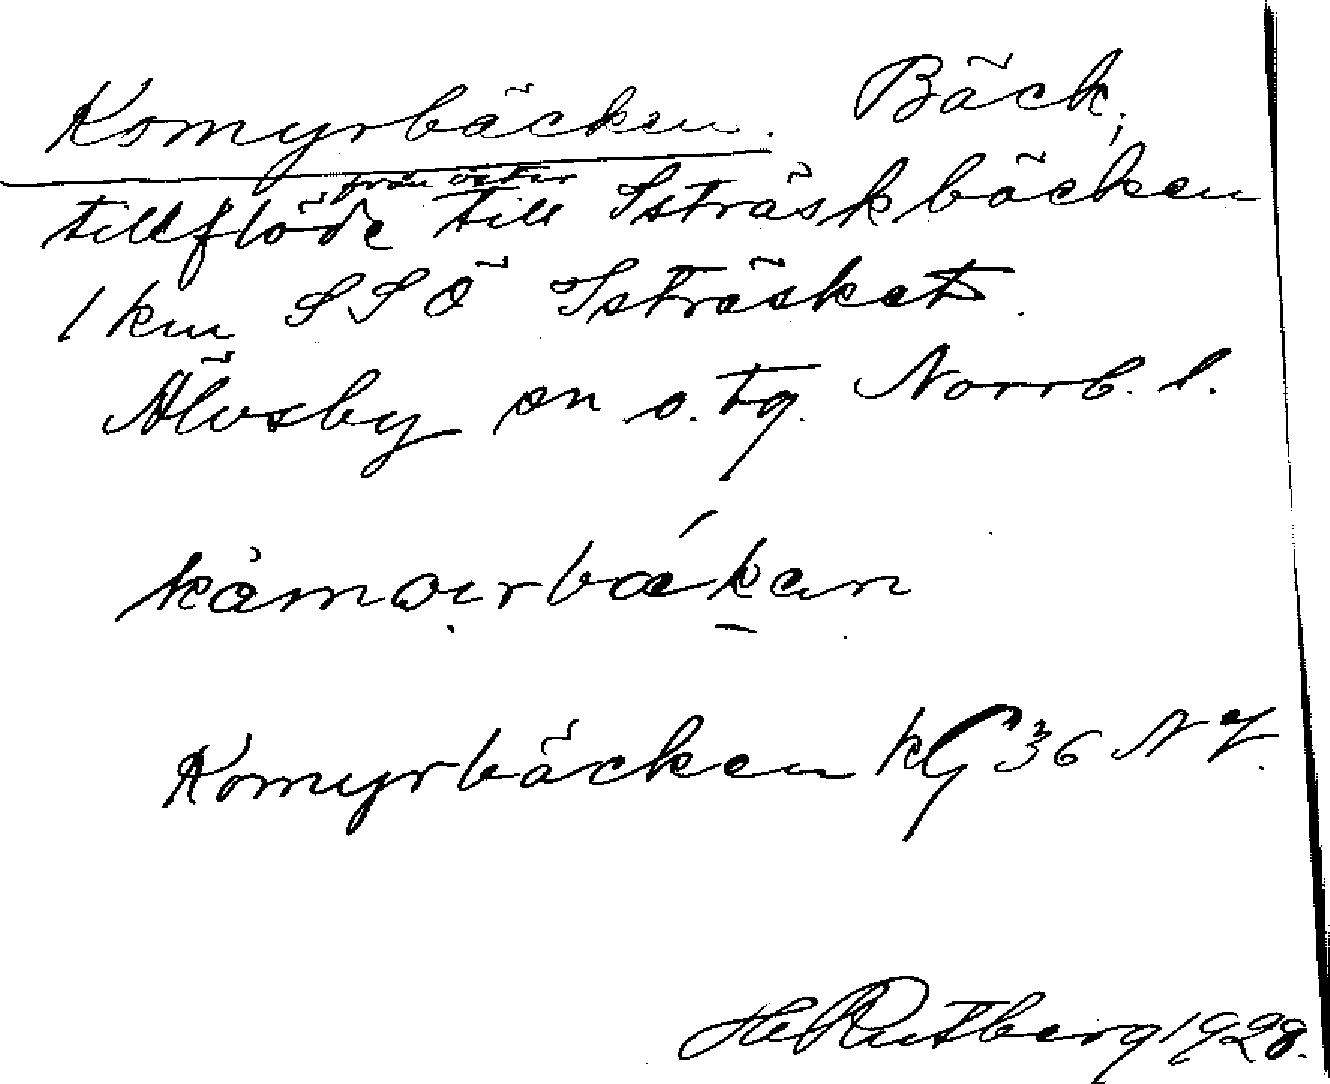 Komyrbäcken. Bäck,
tillflöde från öster till Isträskbäcken
1 km SSÖ Isträsket.
Älvsby sn o. tg. Norrb. l.
Komyrbäcken kG 36 NV.
H Rutberg 1928.